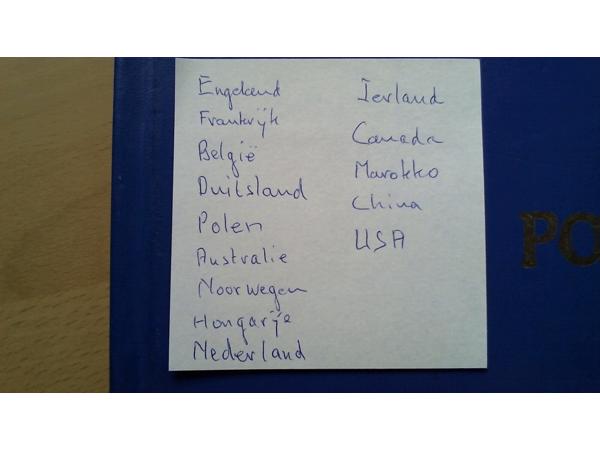 Engeland
Frankrijk
België
Duitsland
Polen
Australie
Noorwegen
Hongarije
Nederland
Ierland
Canada
Marokko
China
USA
PO